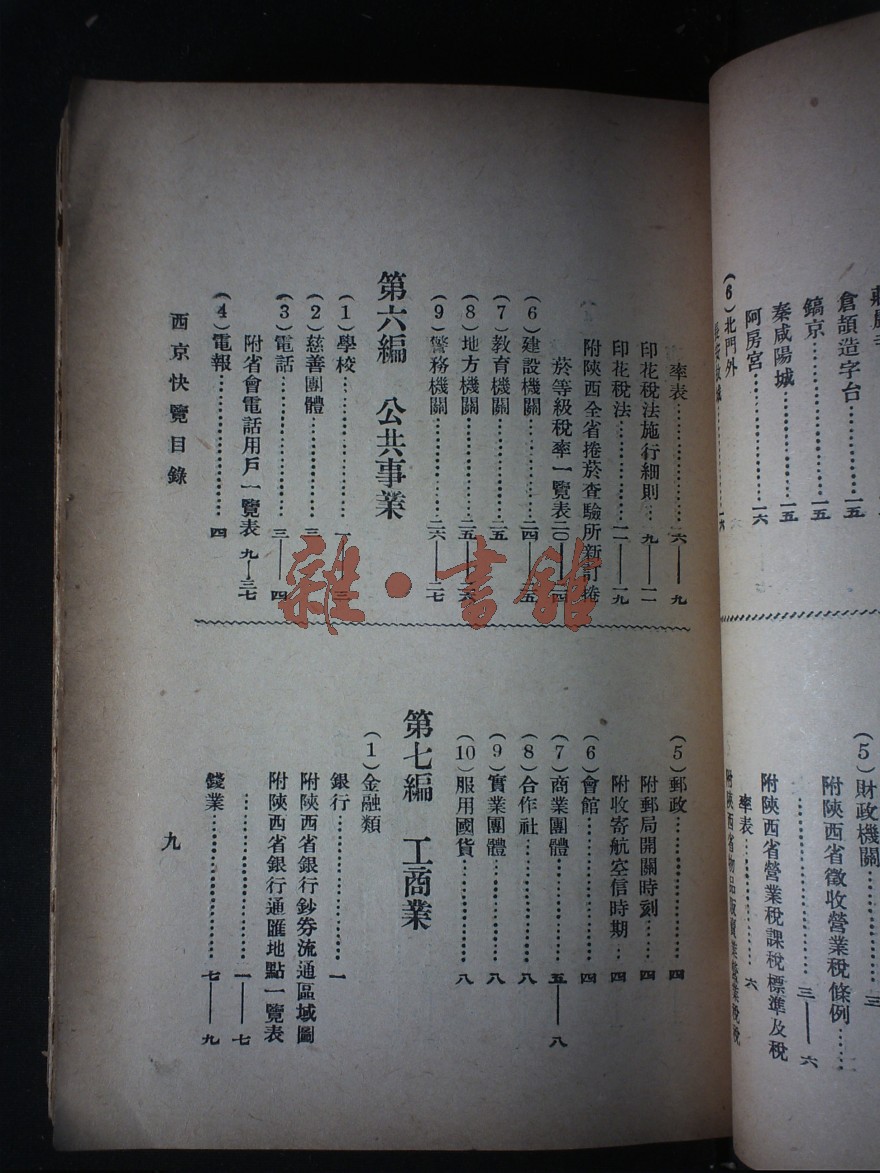 莊嚴寺
倉頡造字台………一五
鎬京………一五
秦咸陽城………一五
阿房宮………一六
(6)北門外
(5)財政機關………三
附陝西省徵收營業稅條例……
………三——六
附陝西省營業稅課稅標準及稅
率表………六
率表………六——九
印花稅法施行細則…九——一一
印花稅法………一一——一九
附陝西全省捲菸查驗所新訂捲
菸等級稅率一覽表二〇——二四
(6)建設機關………二四——二五
(7)教育機關………二五
(8)地方機關………二五——二六
(9)警務機關………二六——二七
第六編 公共事業
(1)學校………一——三
(2)慈善團體………三
(3)電話………三——四
附省會電話用戶一覽表 九—三七
(4)電報………四
西京快覽目錄
(5)郵政………四
附郵局開關時刻………四
附收寄航空信時期…四
(6)會館………四
(7)商業團體………五——八
(8)合作社………八
(9)實業團體………八
(10)服用國貨………八
第七編 工商業
(1)金融類
銀行………一
附陝西省銀行鈔券流通區域圖
附陝西省銀行通匯地點一覽表
………一——七
錢業………七——九
九
雜·書館